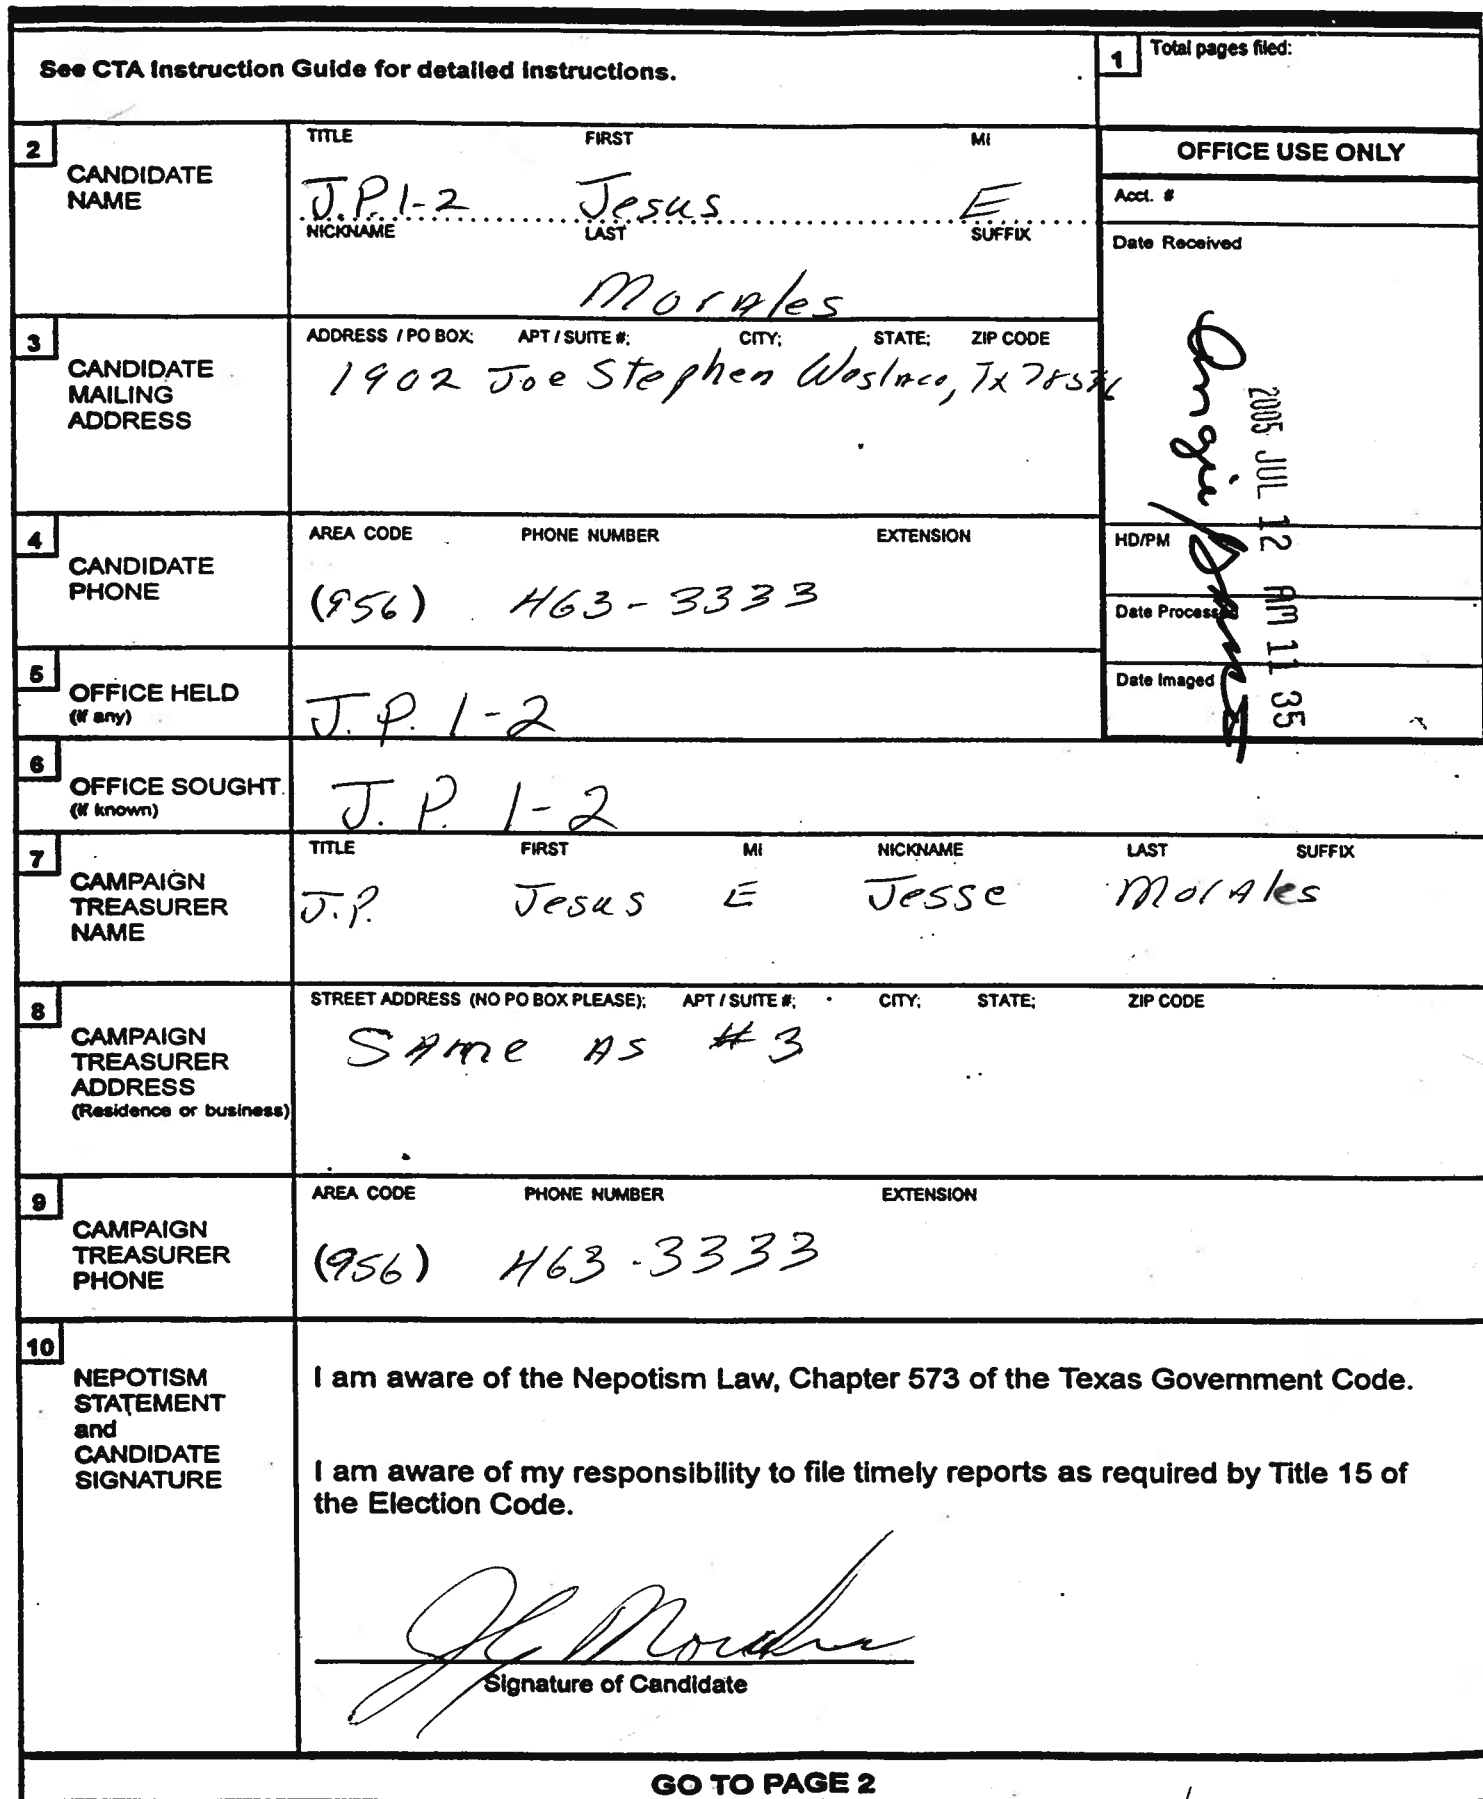 See CTA Instruction Guide for detailed instructions.
1 Total pages filed:
2 CANDIDATE NAME
TITLE FIRST MI
J.P. 1-2 Jesus E
NICKNAME LAST SUFFIX
Morales
OFFICE USE ONLY
Acct. #
Date Received
Angie
2005 JUL 12 AM 11 35
HD/PM
Date Processed
Date Imaged
3 CANDIDATE MAILING ADDRESS
ADDRESS / PO BOX; APT / SUITE #; CITY; STATE; ZIP CODE
1902 Joe Stephen Weslaco, Tx 78596
4 CANDIDATE PHONE
AREA CODE PHONE NUMBER EXTENSION
(956) 463-3333
5 OFFICE HELD (if any)
J.P. 1-2
6 OFFICE SOUGHT (if known)
J.P. 1-2
7 CAMPAIGN TREASURER NAME
TITLE FIRST MI NICKNAME LAST SUFFIX
J.P. Jesus E Jesse Morales
8 CAMPAIGN TREASURER ADDRESS (Residence or business)
STREET ADDRESS (NO PO BOX PLEASE); APT / SUITE #; CITY; STATE; ZIP CODE
SAme AS #3
9 CAMPAIGN TREASURER PHONE
AREA CODE PHONE NUMBER EXTENSION
(956) 463-3333
10 NEPOTISM STATEMENT and CANDIDATE SIGNATURE
I am aware of the Nepotism Law, Chapter 573 of the Texas Government Code.
I am aware of my responsibility to file timely reports as required by Title 15 of
the Election Code.
Signature of Candidate
GO TO PAGE 2